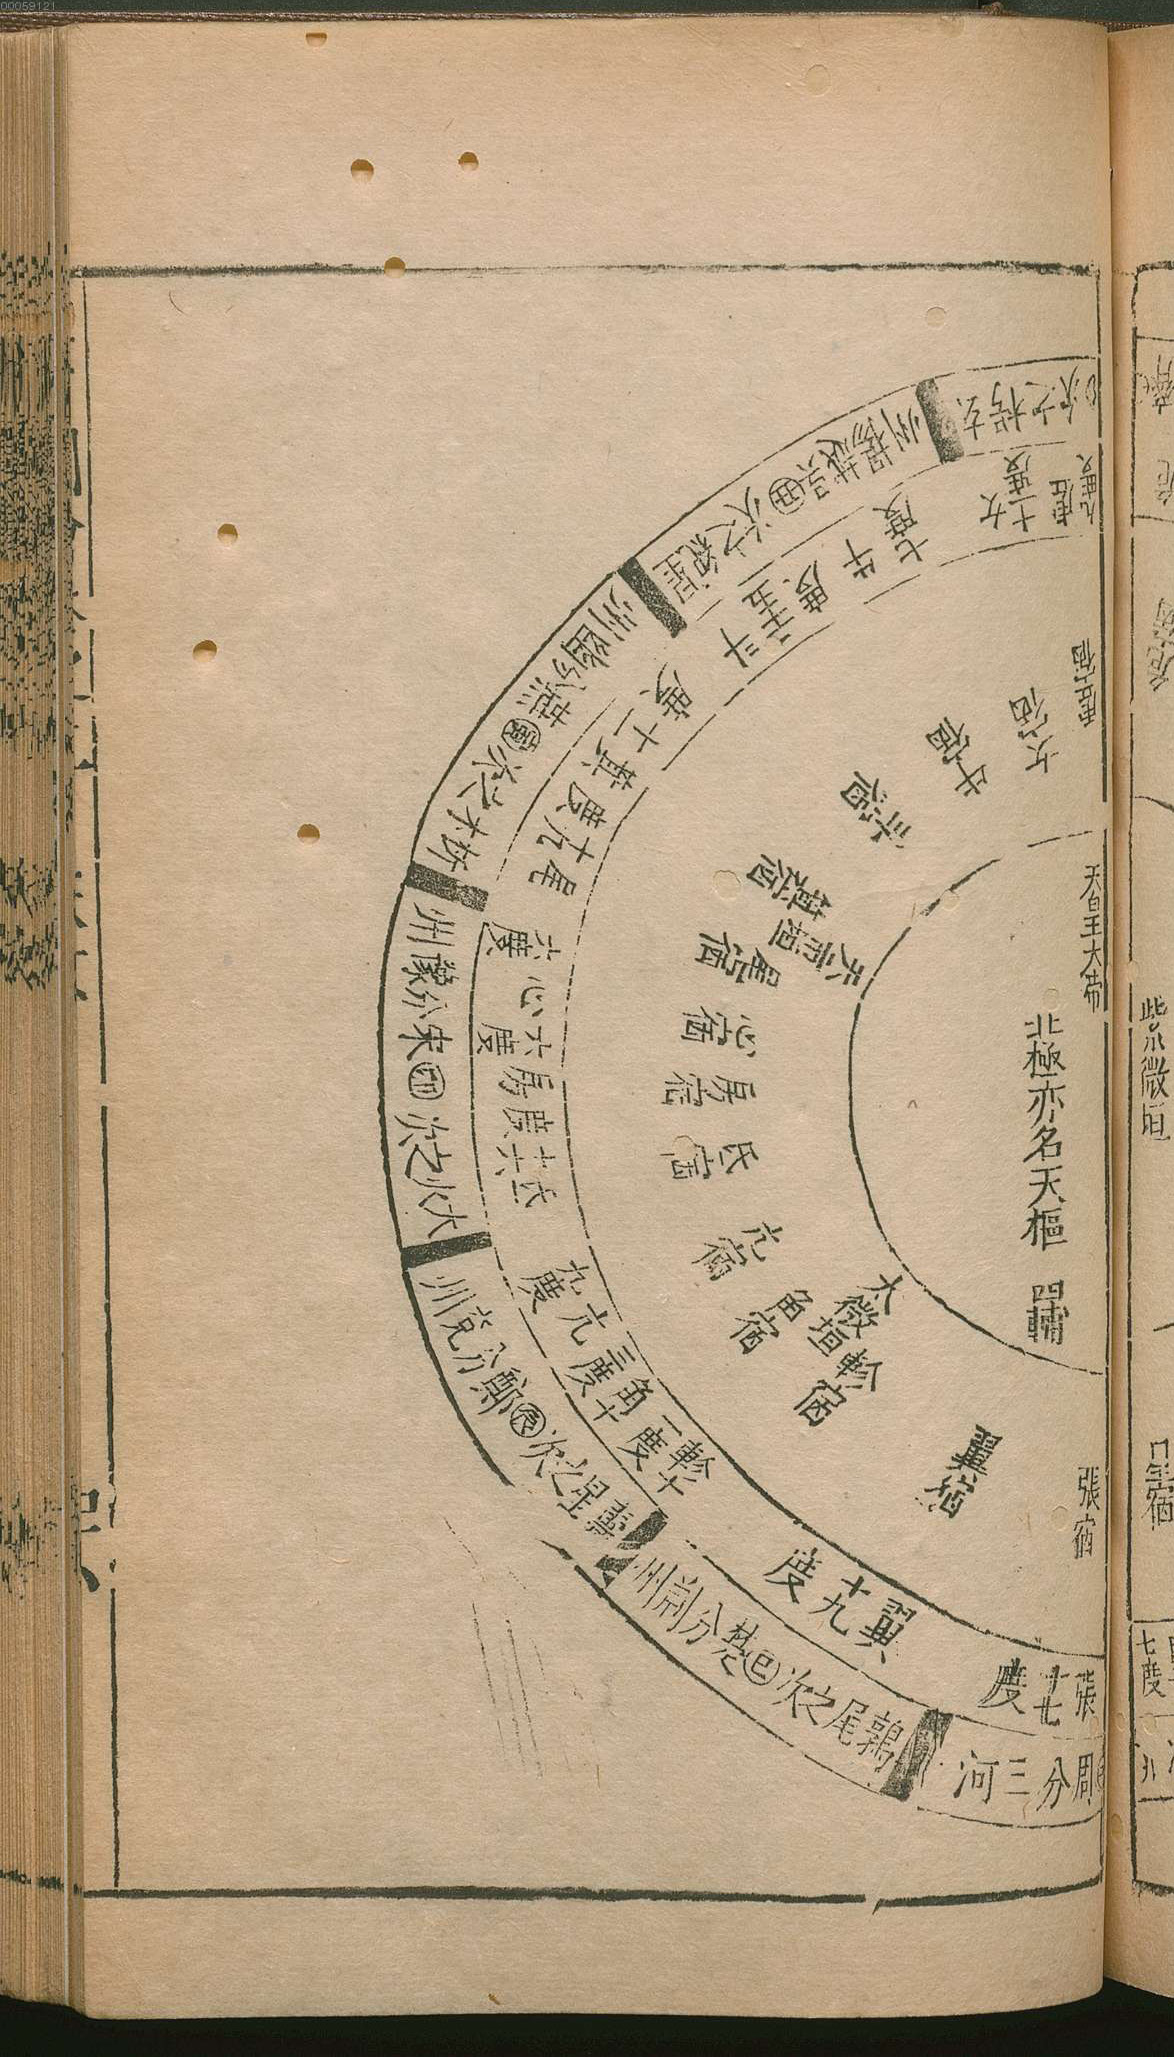 00059121
次之枵玄
州揚分吳丑次之紀星
州幽分燕寅次之木析
州豫分宋卯次之火大
州兗分鄭辰次之星壽
州荆分楚巳次之尾鶉
周分三河
虛
女十二度
牛七度
斗二十五度
箕十一度
尾十九度
心六度
房六度
氐十六度
亢九度
角十三度
軫十七度
翼十九度
張十七度
虛宿
女宿
牛宿
斗宿
箕宿
尾宿
心宿
房宿
氐宿
亢宿
角宿
軫宿
翼宿
張宿
天市垣
太微垣
天皇大帝
北極亦名天樞
四輔
紫微垣
星宿
七度